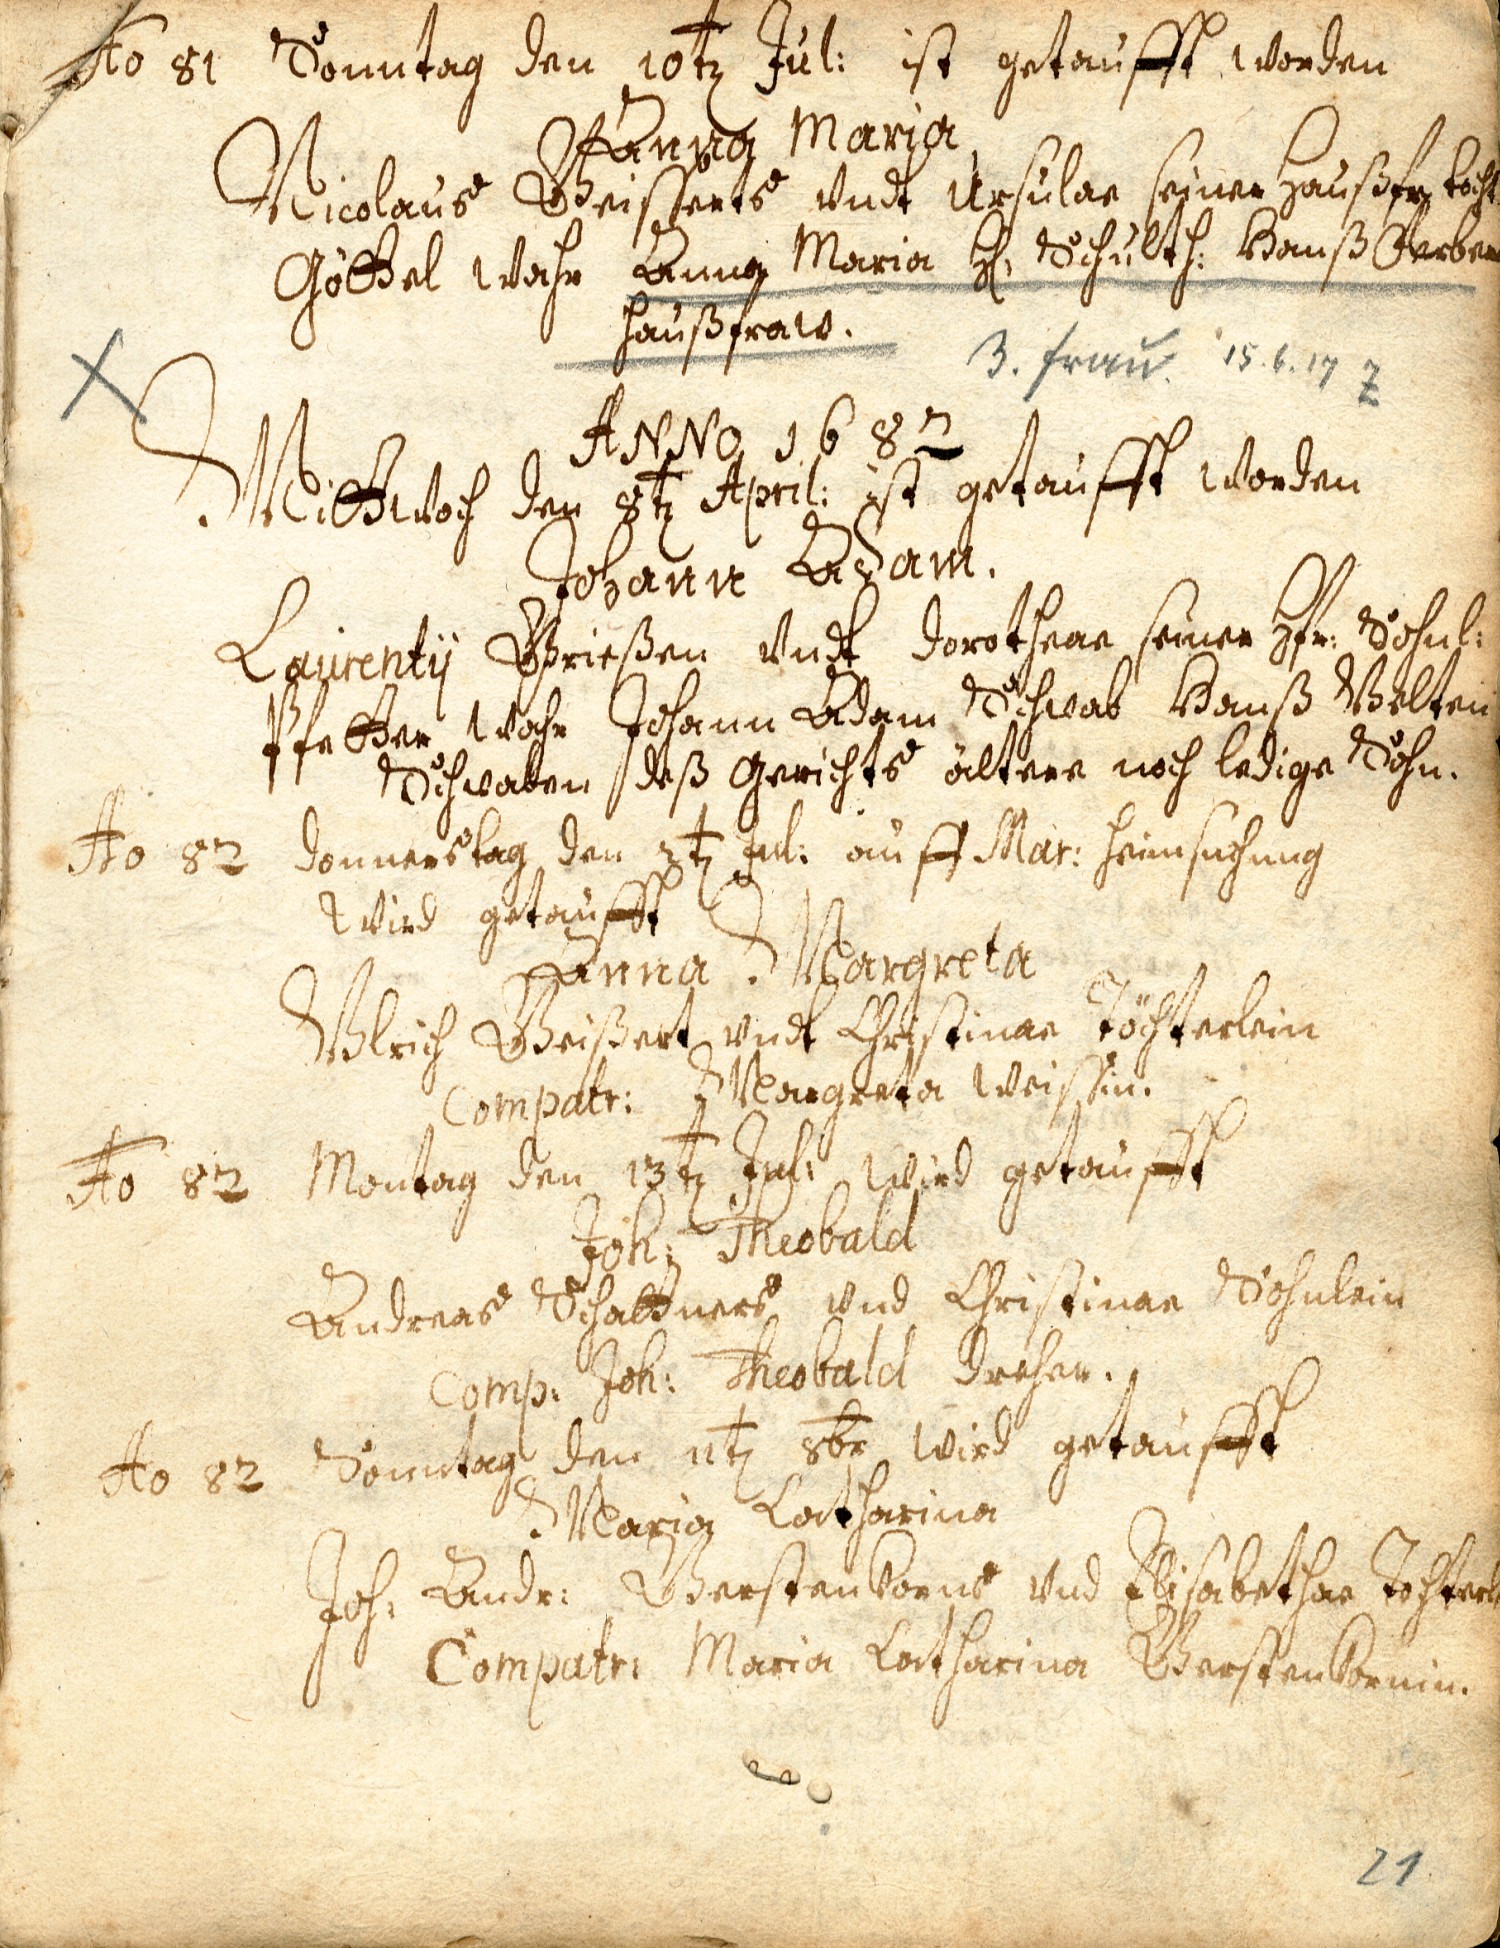 Ao 81 Sonntag den 10t Jul: ist getaufft worden
Anna Maria
Nicolaus Geisserts vndt Ursulae seiner Haußfr. tocht
Göttel wahr Anna Maria H. Schulth: Hanß Gerber
haußfraw.
3. frau. 15.6.17
X
ANNO 1682
Mittwoch den 8t April: ist getaufft worden
Johann Adam.
Laurentij Grießen vndt Dorotheae seiner Hfr: Söhnl:
Pfetter wahr Johann Adam Schwab Hanß Velten
Schwaben deß Gerichts ältere noch ledige Sohn.
Ao 82 Donnerstag den 2t Jul: auff Mar: Heimsuchung
wird getaufft
Anna Margreta
Vlrich Geißert vndt Christinae Töchterlein
Compatr: Margreta Weissin.
Ao 82 Montag den 13t Jul: wird getaufft
Joh: Theobald
Andreas Schattners vnd Christinae Söhnlein
Comp: Joh: Theobald Dreher.
Ao 82 Sonntag den 11t 8br wird getaufft
Maria Catharina
Joh: Andr: Gerstenkorns vnd Elisabethae Tochterl
Compatr: Maria Catharina Gerstenkornin.
21